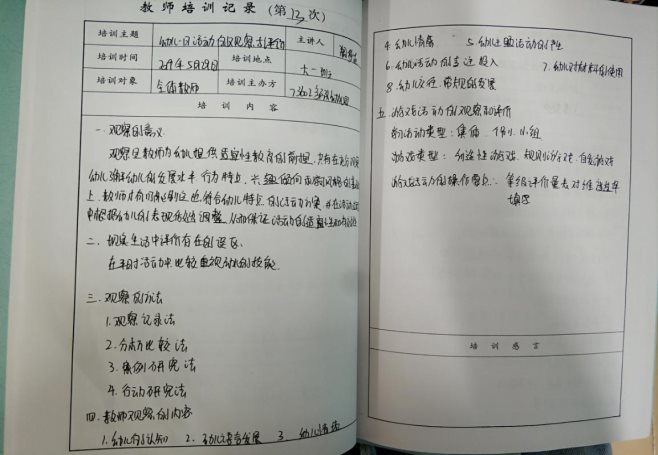 教师培训记录（第13次）
培训主题 幼儿区活动的观察和评价 主讲人
培训时间 2019年5月28日 培训地点 大一班
培训对象 全体教师 培训主办方
培训内容
一、观察的意义
观察是教师为幼儿提供适宜性教育的前提，只有在充分观察
幼儿、了解幼儿的发展水平、行为特点、兴趣倾向
上，教师才有可能制定出符合幼儿特点的活动方案，并在活动过程
中根据幼儿的表现经过调整，从而保证活动的适宜性和有效性
二、现实生活中评价存在的误区
在平时活动中比较重视幼儿的技能
三、观察的方法
1、观察记录法
2、分析比较法
3、案例研究法
4、行动研究法
四、教师观察的内容
1、幼儿的认知 2、幼儿语言发展 3、幼儿
4、幼儿情感 5、幼儿主题活动创造性
6、幼儿活动的专注投入 7、幼儿对材料的使用
8、幼儿交往、常规的发展
五、游戏活动的观察和评价
活动类型：集体、个别、小组
游戏类型：创造性游戏、规则游戏、自由游戏
游戏活动的操作要点：等级评价量表对维度
填写
培训感言